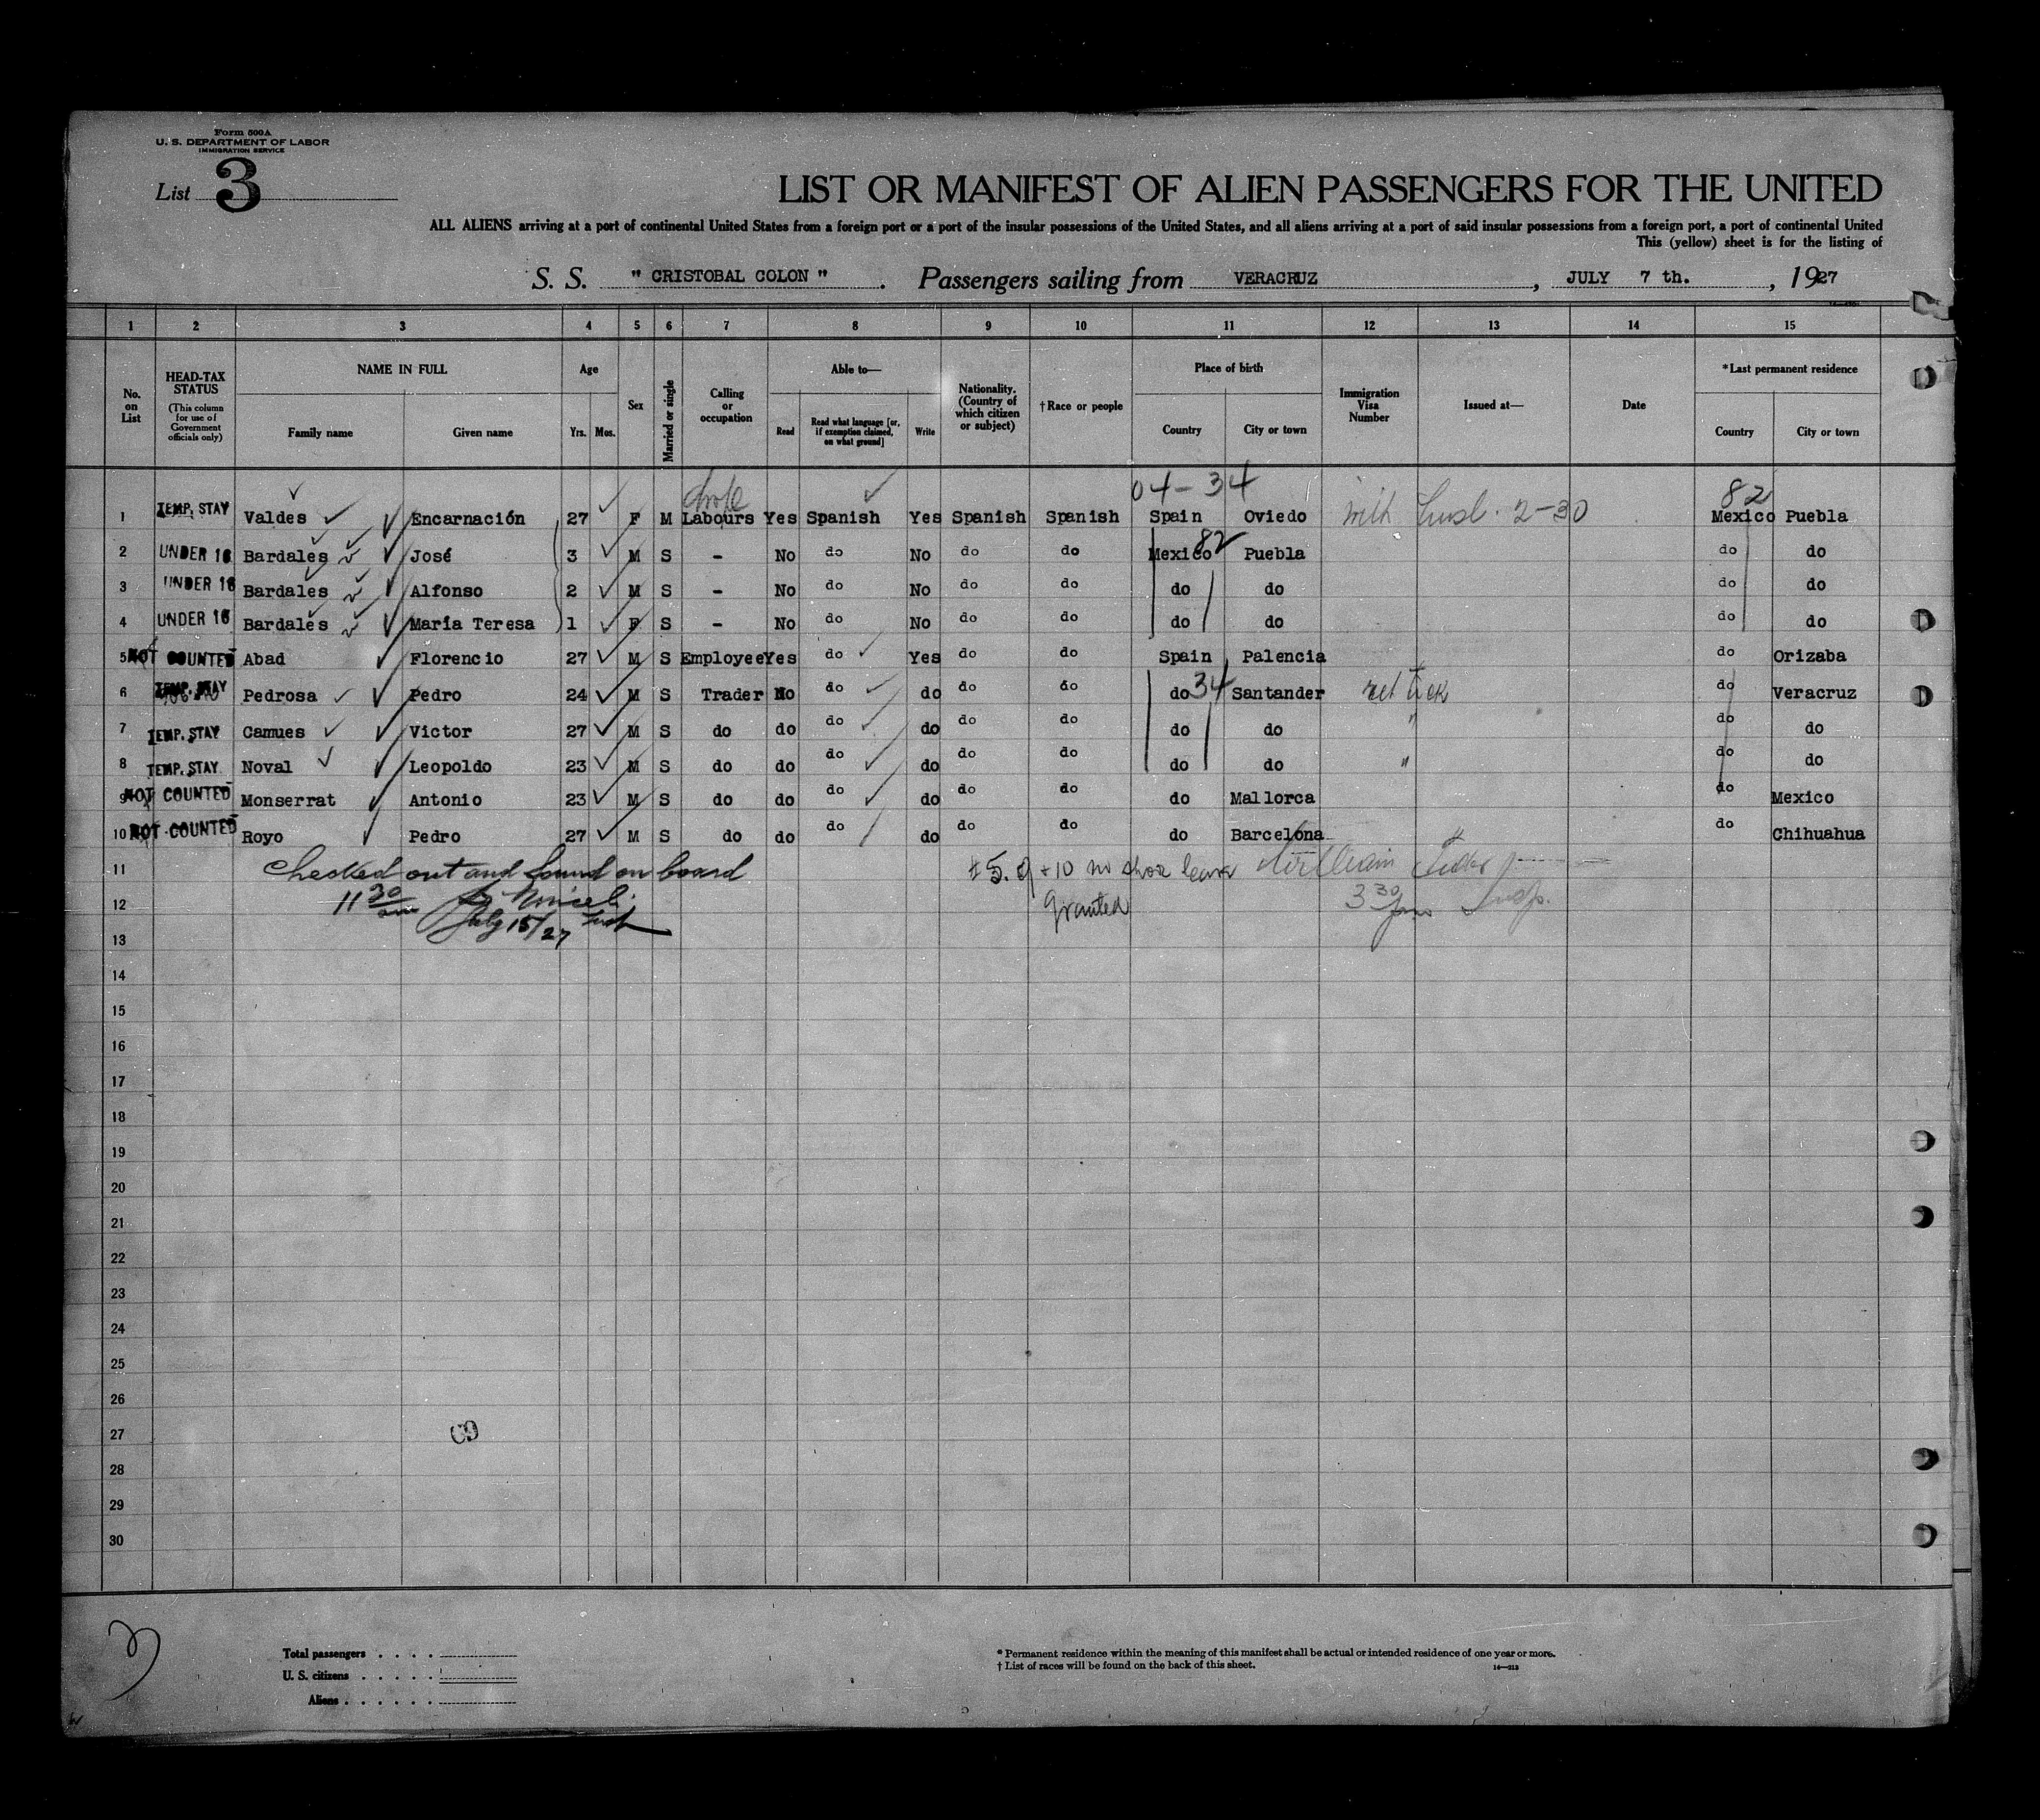 Form 500A
U. S. DEPARTMENT OF LABOR
IMMIGRATION SERVICE
List 3
LIST OR MANIFEST OF ALIEN PASSENGERS FOR THE UNITED
ALL ALIENS arriving at a port of continental United States from a foreign port or a port of the insular possessions of the United States, and all aliens arriving at a port of said insular possessions from a foreign port, a port of continental United
This (yellow) sheet is for the listing of
S. S. " CRISTOBAL COLON " . Passengers sailing from VERACRUZ , JULY 7 th. , 1927
1 2 3 4 5 6 7 8 9 10 11 12 13 14 15
No. on List HEAD-TAX STATUS (This column for use of Government officials only) NAME IN FULL Family name Given name Age Yrs. Mos. Sex Married or single Calling or occupation Able to— Read Read what language [or, if exemption claimed, on what ground] Write Nationality. (Country of which citizen or subject) † Race or people Place of birth Country City or town Immigration Visa Number Issued at— Date * Last permanent residence Country City or town
04-34 82
1 TEMP. STAY Valdes Encarnación 27 F M Labours Yes Spanish Yes Spanish Spanish Spain Oviedo with husb. 2-30 Mexico Puebla
2 UNDER 16 Bardales José 3 M S - No do No do do Mexico 82 Puebla do do
3 UNDER 16 Bardales Alfonso 2 M S - No do No do do do do do do
4 UNDER 16 Bardales María Teresa 1 F S - No do No do do do do do do
5 NOT COUNTED Abad Florencio 27 M S Employee Yes do Yes do do Spain Palencia do Orizaba
6 TEMP. STAY Pedrosa Pedro 24 M S Trader No do do do do do 34 Santander ret tick do Veracruz
7 TEMP. STAY Camues Victor 27 M S do do do do do do do do " do do
8 TEMP. STAY Noval Leopoldo 23 M S do do do do do do do do " do do
9 NOT COUNTED Monserrat Antonio 23 M S do do do do do do do Mallorca do Mexico
10 NOT COUNTED Royo Pedro 27 M S do do do do do do do Barcelona do Chihuahua
11 Checked out and found on board #5. 9 + 10 no shore leave William
12 11 30 am granted 3 30 pm Insp.
July 15/27
13
14
15
16
17
18
19
20
21
22
23
24
25
26
27
28
29
30
3
Total passengers . . . .
U. S. citizens . . . . .
Aliens . . . . . .
* Permanent residence within the meaning of this manifest shall be actual or intended residence of one year or more.
† List of races will be found on the back of this sheet. 14—213